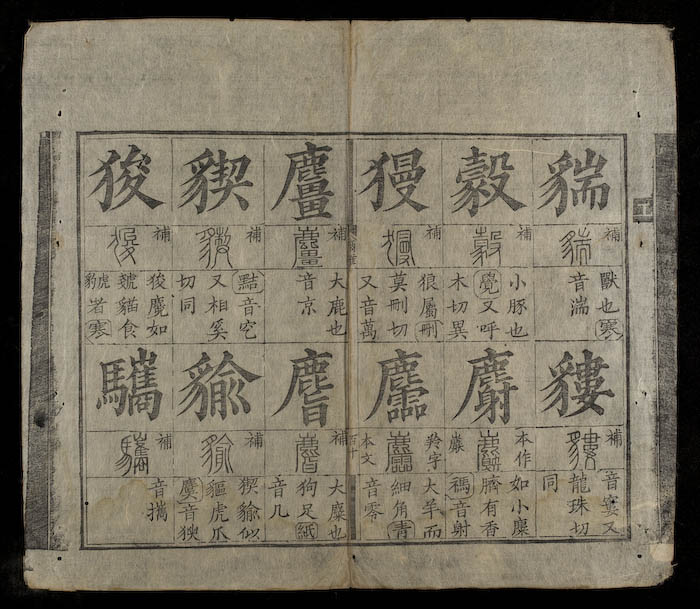 貒
補
獸也寒
音湍
豰
補
小豚也
覺又呼
木切異
獌
補
狼屬刪
莫刪切
又音萬
麠
補
大鹿也
音京
貕
補
黠音穵
又相奚
切同
狻
補
狻麑如
虦貓食
虎
豹者寒
貗
補
音寠又
龍珠切
同
麝
本作
如小麋
臍有香
禡音射
麢
羚字
本文
大羊而
細角青
音零
百十
麔
補
大麋也
狗足紙
音几
貐
補
猰貐似
貙虎爪
麌音㺄
驨
補
音攜